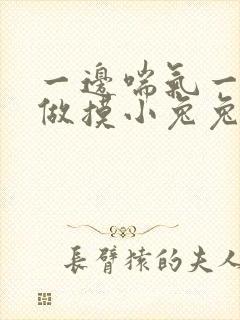 一邊喘氣一
做摸小兔兔
長臂猿的夫人